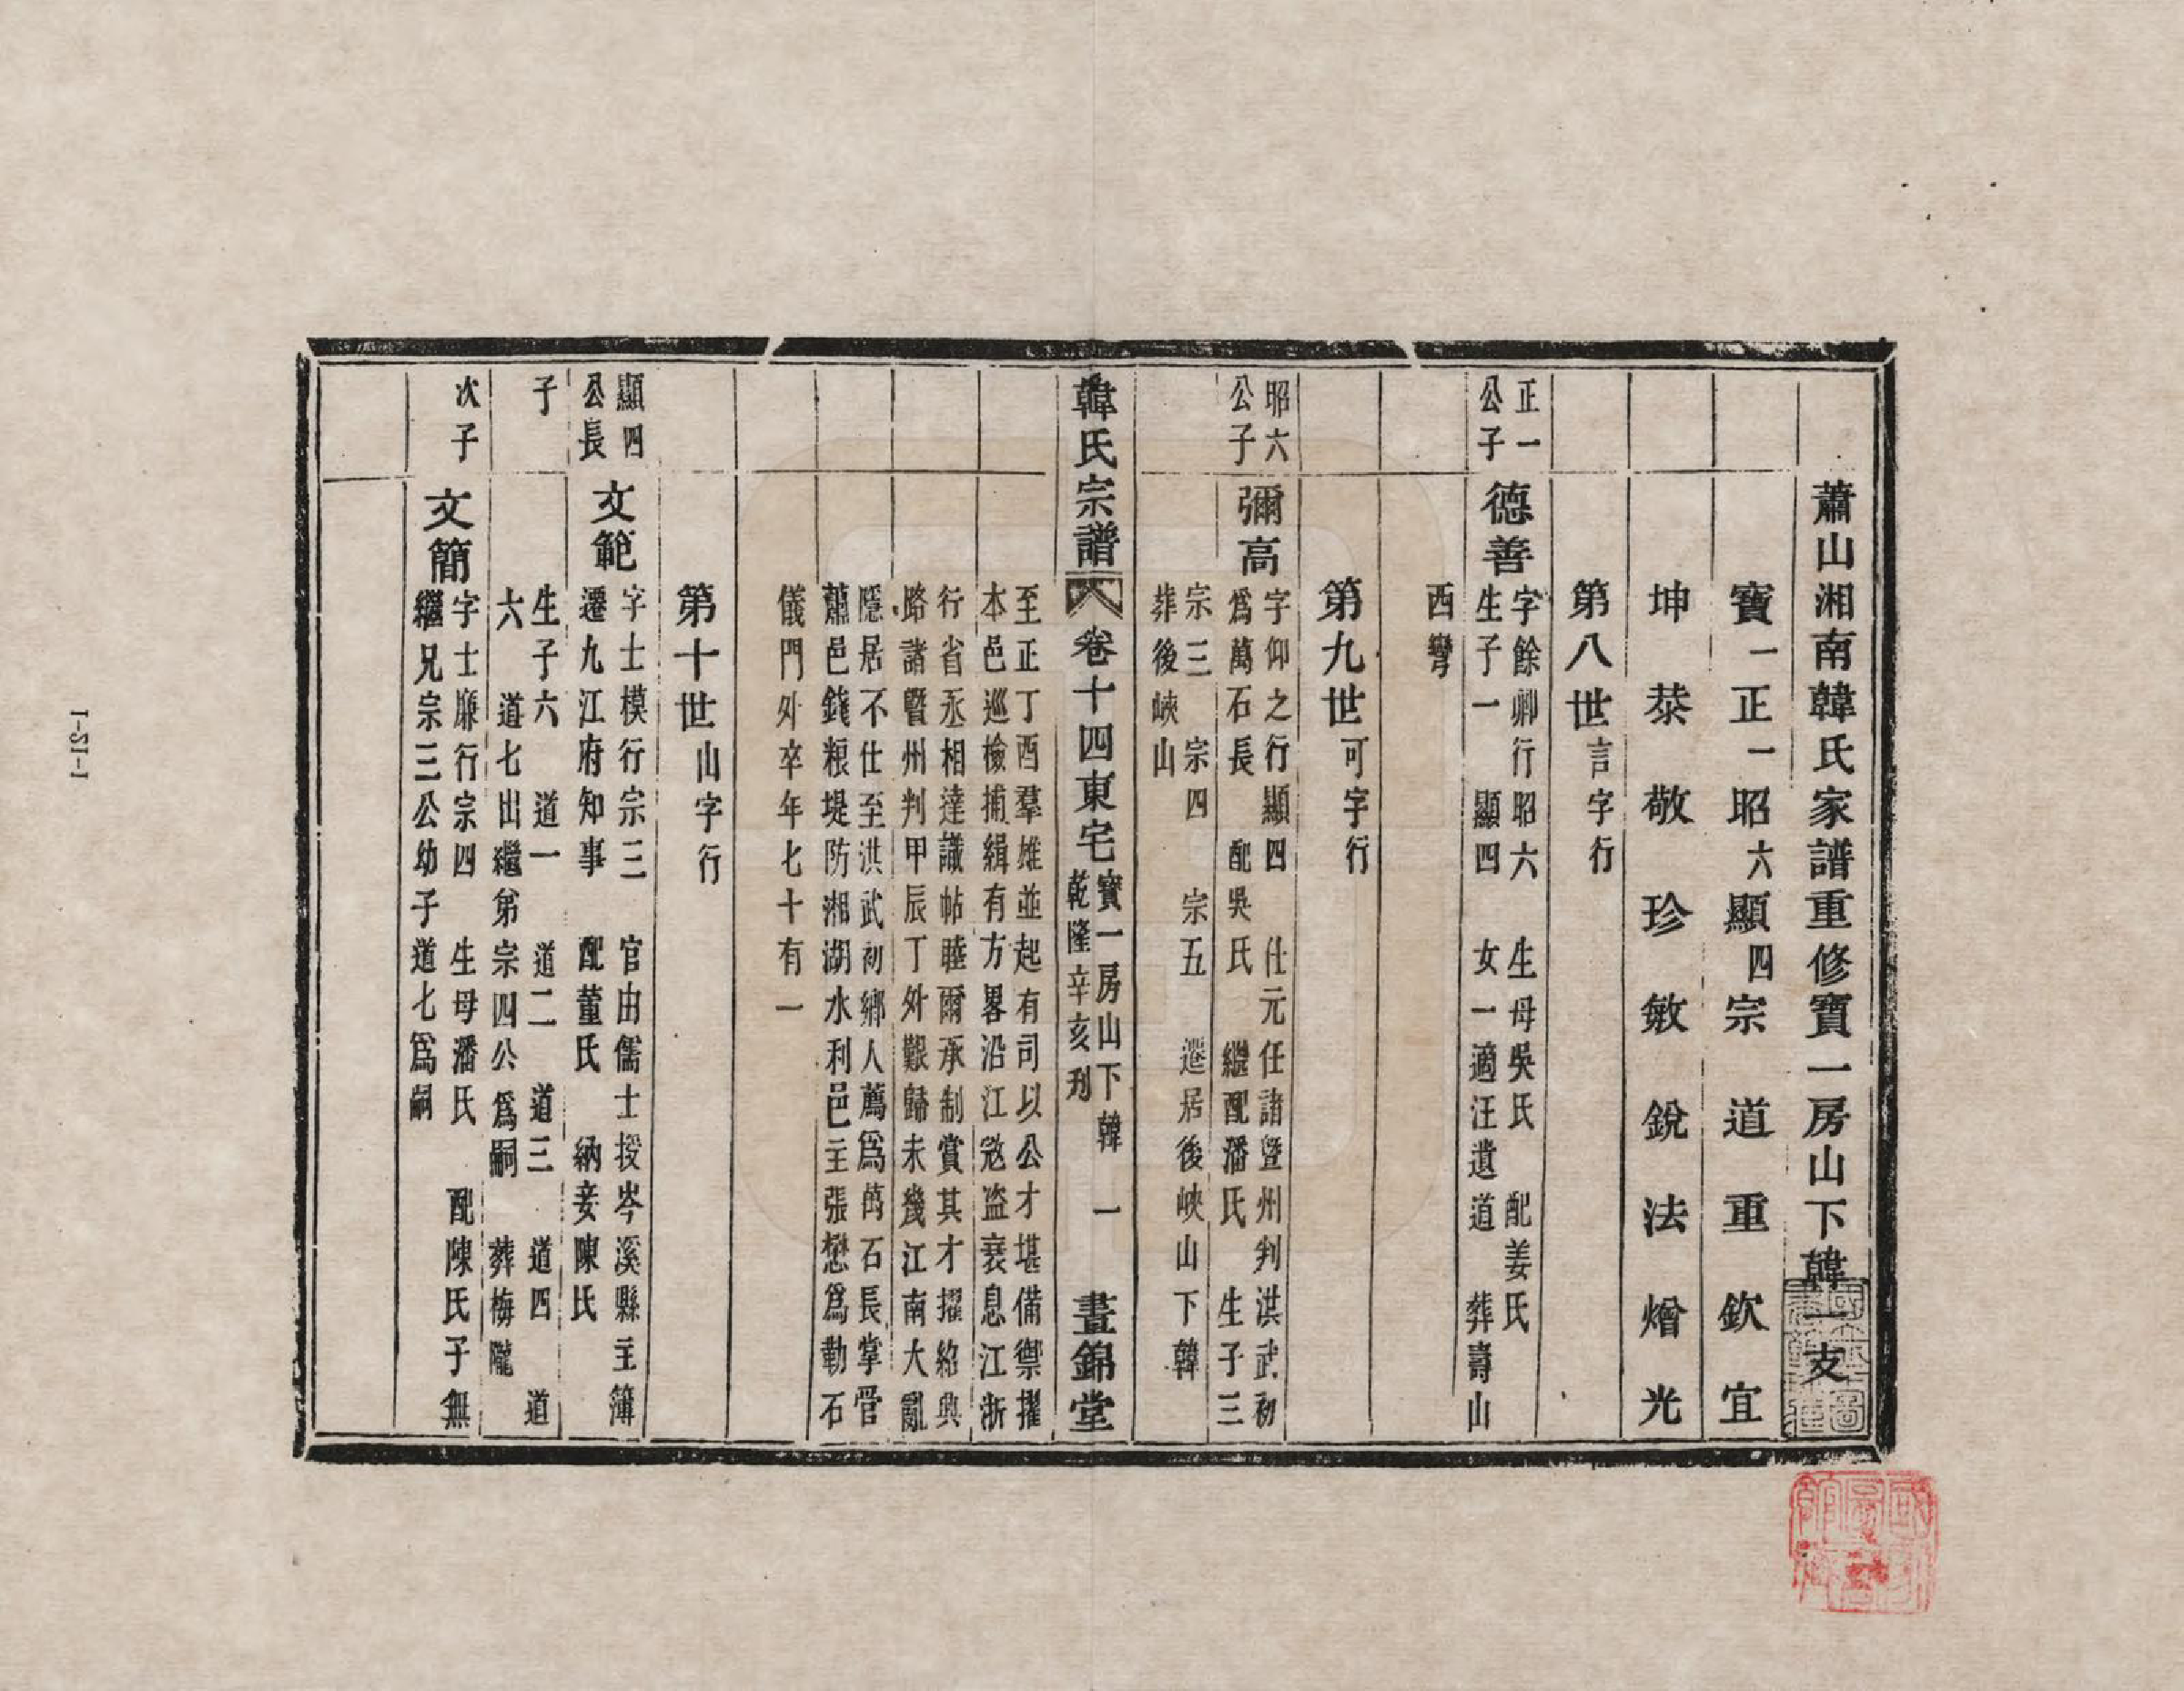 蕭山湘南韓氏家譜重修寶一房山下韓一支
寶一正一昭六顯四宗道重欽宜
坤恭敬珍敏銳法燴光
第八世言字行
正一
公子
德善
字餘卿行昭六 生母吳氏 配姜氏
生子一 顯四 女一適汪遺道 葬壽山
西彎
第九世可字行
昭六
公子
彌高
字仰之行顯四 仕元任諸暨州判洪武初
爲萬石長 配吳氏 繼配潘氏 生子三
宗三 宗四 宗五 遷居後峽山下韓
葬後峽山
韓氏宗譜
卷十四東宅
寶一房山下韓
乾隆辛亥刋
一
晝錦堂
至正丁酉羣雄並起有司以公才堪備禦擢
本邑巡檢捕緝有方畧沿江宼盜衰息江浙
行省丞相達識帖睦爾承制賞其才擢紹興
路諸暨州判甲辰丁外艱歸未幾江南大亂
隱居不仕至洪武初鄉人薦爲萬石長掌管
蕭邑錢粮堤防湘湖水利邑主張懋爲勒石
儀門外卒年七十有一
第十世山字行
顯四
公長
子
文範
字士模行宗三 官由儒士授岑溪縣主簿
遷九江府知事 配董氏 納妾陳氏
生子六 道一 道二 道三 道四 道
六 道七出繼弟宗四公爲嗣 葬梅隴
次子
文簡
字士廉行宗四 生母潘氏 配陳氏子無
繼兄宗三公幼子道七爲嗣
1-S1-1